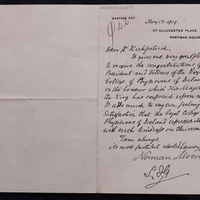 MAYFAIR 627.
67, GLOUCESTER PLACE,
PORTMAN SQUARE.
May 13. 1919.
Dear Dr Kirkpatrick,
It gave me very great pleasure
to receive the congratulations of the
President and Fellows of the Royal
College of Physicians of Ireland
on the honour which His Majesty
the King has conferred upon me.
It adds much to my own feeling of
satisfaction that the Royal College of
Physicians of Ireland expressed itself
with such kindness on this occasion
I am always,
Norman Moore